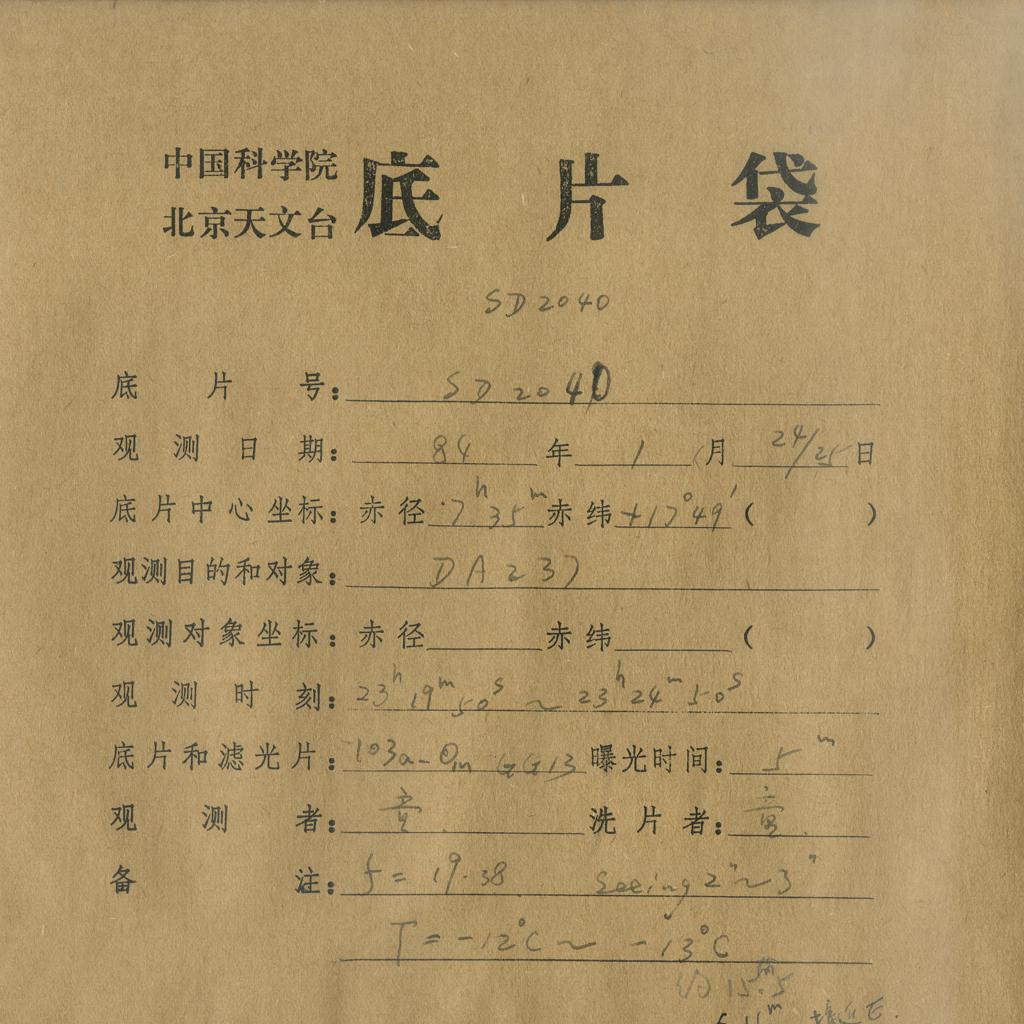 中国科学院
北京天文台 底片袋
SD2040
底片号: SD2040
观测日期: 84年1月24/25日
底片中心坐标: 赤径 7h 35m 赤纬 +17°49′ ( )
观测目的和对象: DA237
观测对象坐标: 赤径 赤纬 ( )
观测时刻: 23h19m50s ~ 23h24m50s
底片和滤光片: 103a-O GG13 曝光时间: 5m
观测者: 童 洗片者: 童
备注: f = 19.38 Seeing 2″~3″
T = -12°C ~ -13°C
15m.5